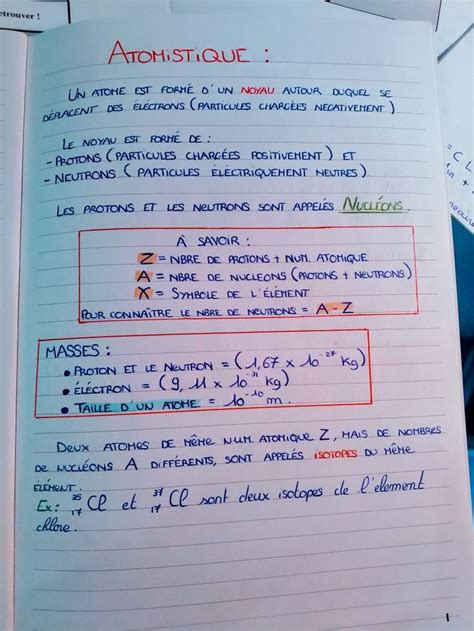 etrouver !
ATOMISTIQUE :
UN ATOME EST FORMÉ D'UN NOYAU AUTOUR DUQUEL SE
DÉPLACENT DES ÉLÉCTRONS (PARTICULES CHARGÉES NEGATIVEMENT)
LE NOYAU EST FORMÉ DE :
- PROTONS (PARTICULES CHARGÉES POSITIVEMENT) ET
- NEUTRONS (PARTICULES ÉLÉCTRIQUEMENT NEUTRES).
LES PROTONS ET LES NEUTRONS SONT APPELÉS NUCLÉONS.
À SAVOIR :
Z = NBRE DE PROTONS + NUM. ATOMIQUE
A = NBRE DE NUCLEONS (PROTONS + NEUTRONS)
X = SYMBOLE DE L'ÉLÉMENT
POUR CONNAÎTRE LE NBRE DE NEUTRONS = A - Z
MASSES :
• PROTON ET LE NEUTRON = (1,67 x 10⁻²⁷ kg)
• ÉLÉCTRON = (9,11 x 10⁻³¹ kg)
• TAILLE D'UN ATOME = 10⁻¹⁰ m.
DEUX ATOMES DE MÊME NUM. ATOMIQUE Z, MAIS DE NOMBRES
DE NUCLÉONS A DIFFÉRENTS, SONT APPELÉS ISOTOPES DU MÊME
ÉLÉMENT.
Ex: ³⁵₁₇Cl et ³⁷₁₇Cl sont deux isotopes de l'élement
chlore.
1